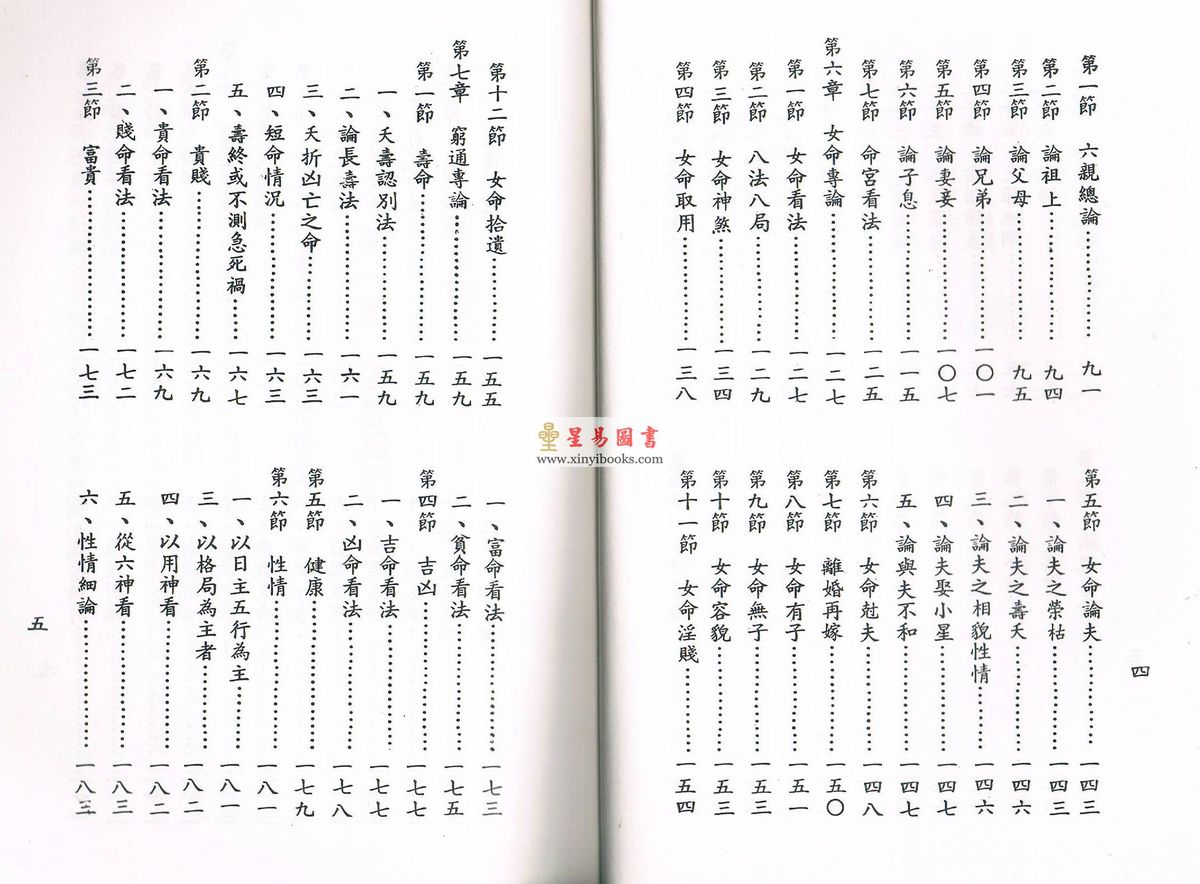 第一節　六親總論……………九一
第二節　論祖上……………九四
第三節　論父母……………九五
第四節　論兄弟……………一〇一
第五節　論妻妾……………一〇七
第六節　論子息……………一一五
第七節　命宮看法……………一二五
第六章　女命專論……………一二七
第一節　女命看法……………一二七
第二節　八法八局……………一二九
第三節　女命神煞……………一三四
第四節　女命取用……………一三八
第五節　女命論夫……………一四三
一、論夫之榮枯……………一四三
二、論夫之壽夭……………一四六
三、論夫之相貌性情……………一四六
四、論夫娶小星……………一四七
五、論與夫不和……………一四七
第六節　女命尅夫……………一四八
第七節　離婚再嫁……………一五〇
第八節　女命有子……………一五一
第九節　女命無子……………一五三
第十節　女命容貌……………一五三
第十一節　女命淫賤……………一五四
四
第十二節　女命拾遺……………一五五
第七章　窮通專論……………一五九
第一節　壽命……………一五九
一、夭壽認別法……………一五九
二、論長壽法……………一六一
三、夭折凶亡之命……………一六三
四、短命情況……………一六三
五、壽終或不測急死禍……………一六七
第二節　貴賤……………一六九
一、貴命看法……………一六九
二、賤命看法……………一七二
第三節　富貴……………一七三
一、富命看法……………一七三
二、貧命看法……………一七五
第四節　吉凶……………一七七
一、吉命看法……………一七七
二、凶命看法……………一七八
第五節　健康……………一七九
第六節　性情……………一八一
一、以日主五行為主……………一八一
三、以格局為主者……………一八二
四、以用神看……………一八二
五、從六神看……………一八三
六、性情細論……………一八三
五
星易圖書
www.xinyibooks.com